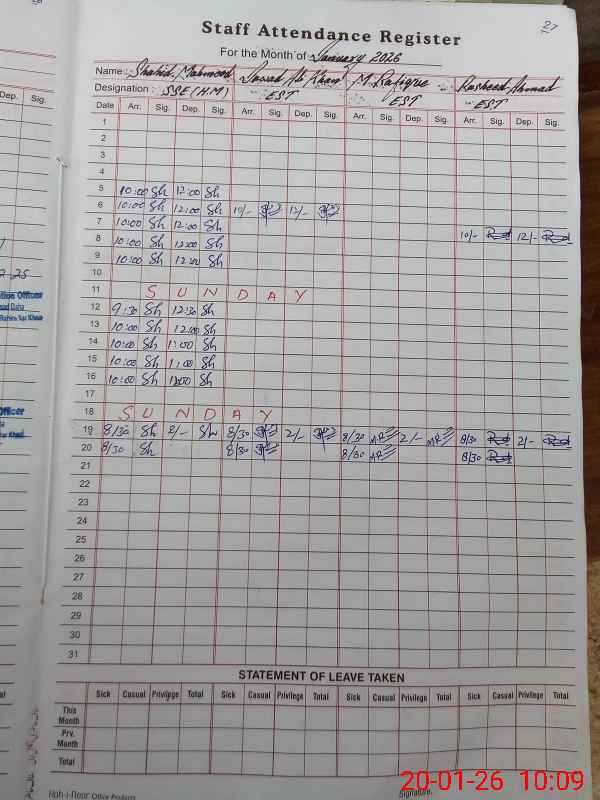 27
Staff Attendance Register
For the Month of January 2026
Name: Shahid Mahmood Ali Khan M. Rafique Rasheed Ahmad
Designation: SSE (H.M) EST EST EST
Dep. Sig. Date Arr. Sig. Dep. Sig. Arr. Sig. Dep. Sig. Arr. Sig. Dep. Sig. Arr. Sig. Dep. Sig.
1
2
3
4
5 10:00 Sh 12:00 Sh
6 10:00 Sh 12:00 Sh 10/- 12/-
7 10:00 Sh 12:00 Sh
8 10:00 Sh 12:00 Sh 10/- 12/-
9 10:00 Sh 12:00 Sh
10
11 SUNDAY
12 9:30 Sh 12:30 Sh
13 10:00 Sh 12:00 Sh
14 10:00 Sh 1:00 Sh
15 10:00 Sh 1:00 Sh
16 10:00 Sh Sh
17
18 SUNDAY
19 8/30 Sh 2/- Sh 8/30 2/- 8/30 2/- 8/30 2/-
20 8/30 Sh 8/30 8/30 8/30
21
22
23
24
25
26
27
28
29
30
31
STATEMENT OF LEAVE TAKEN
Sick Casual Privilege Total Sick Casual Privilege Total Sick Casual Privilege Total Sick Casual Privilege Total
This Month
Prv. Month
Total
Hoh-i-Noor Office Products
Signature.
20-01-26 10:09